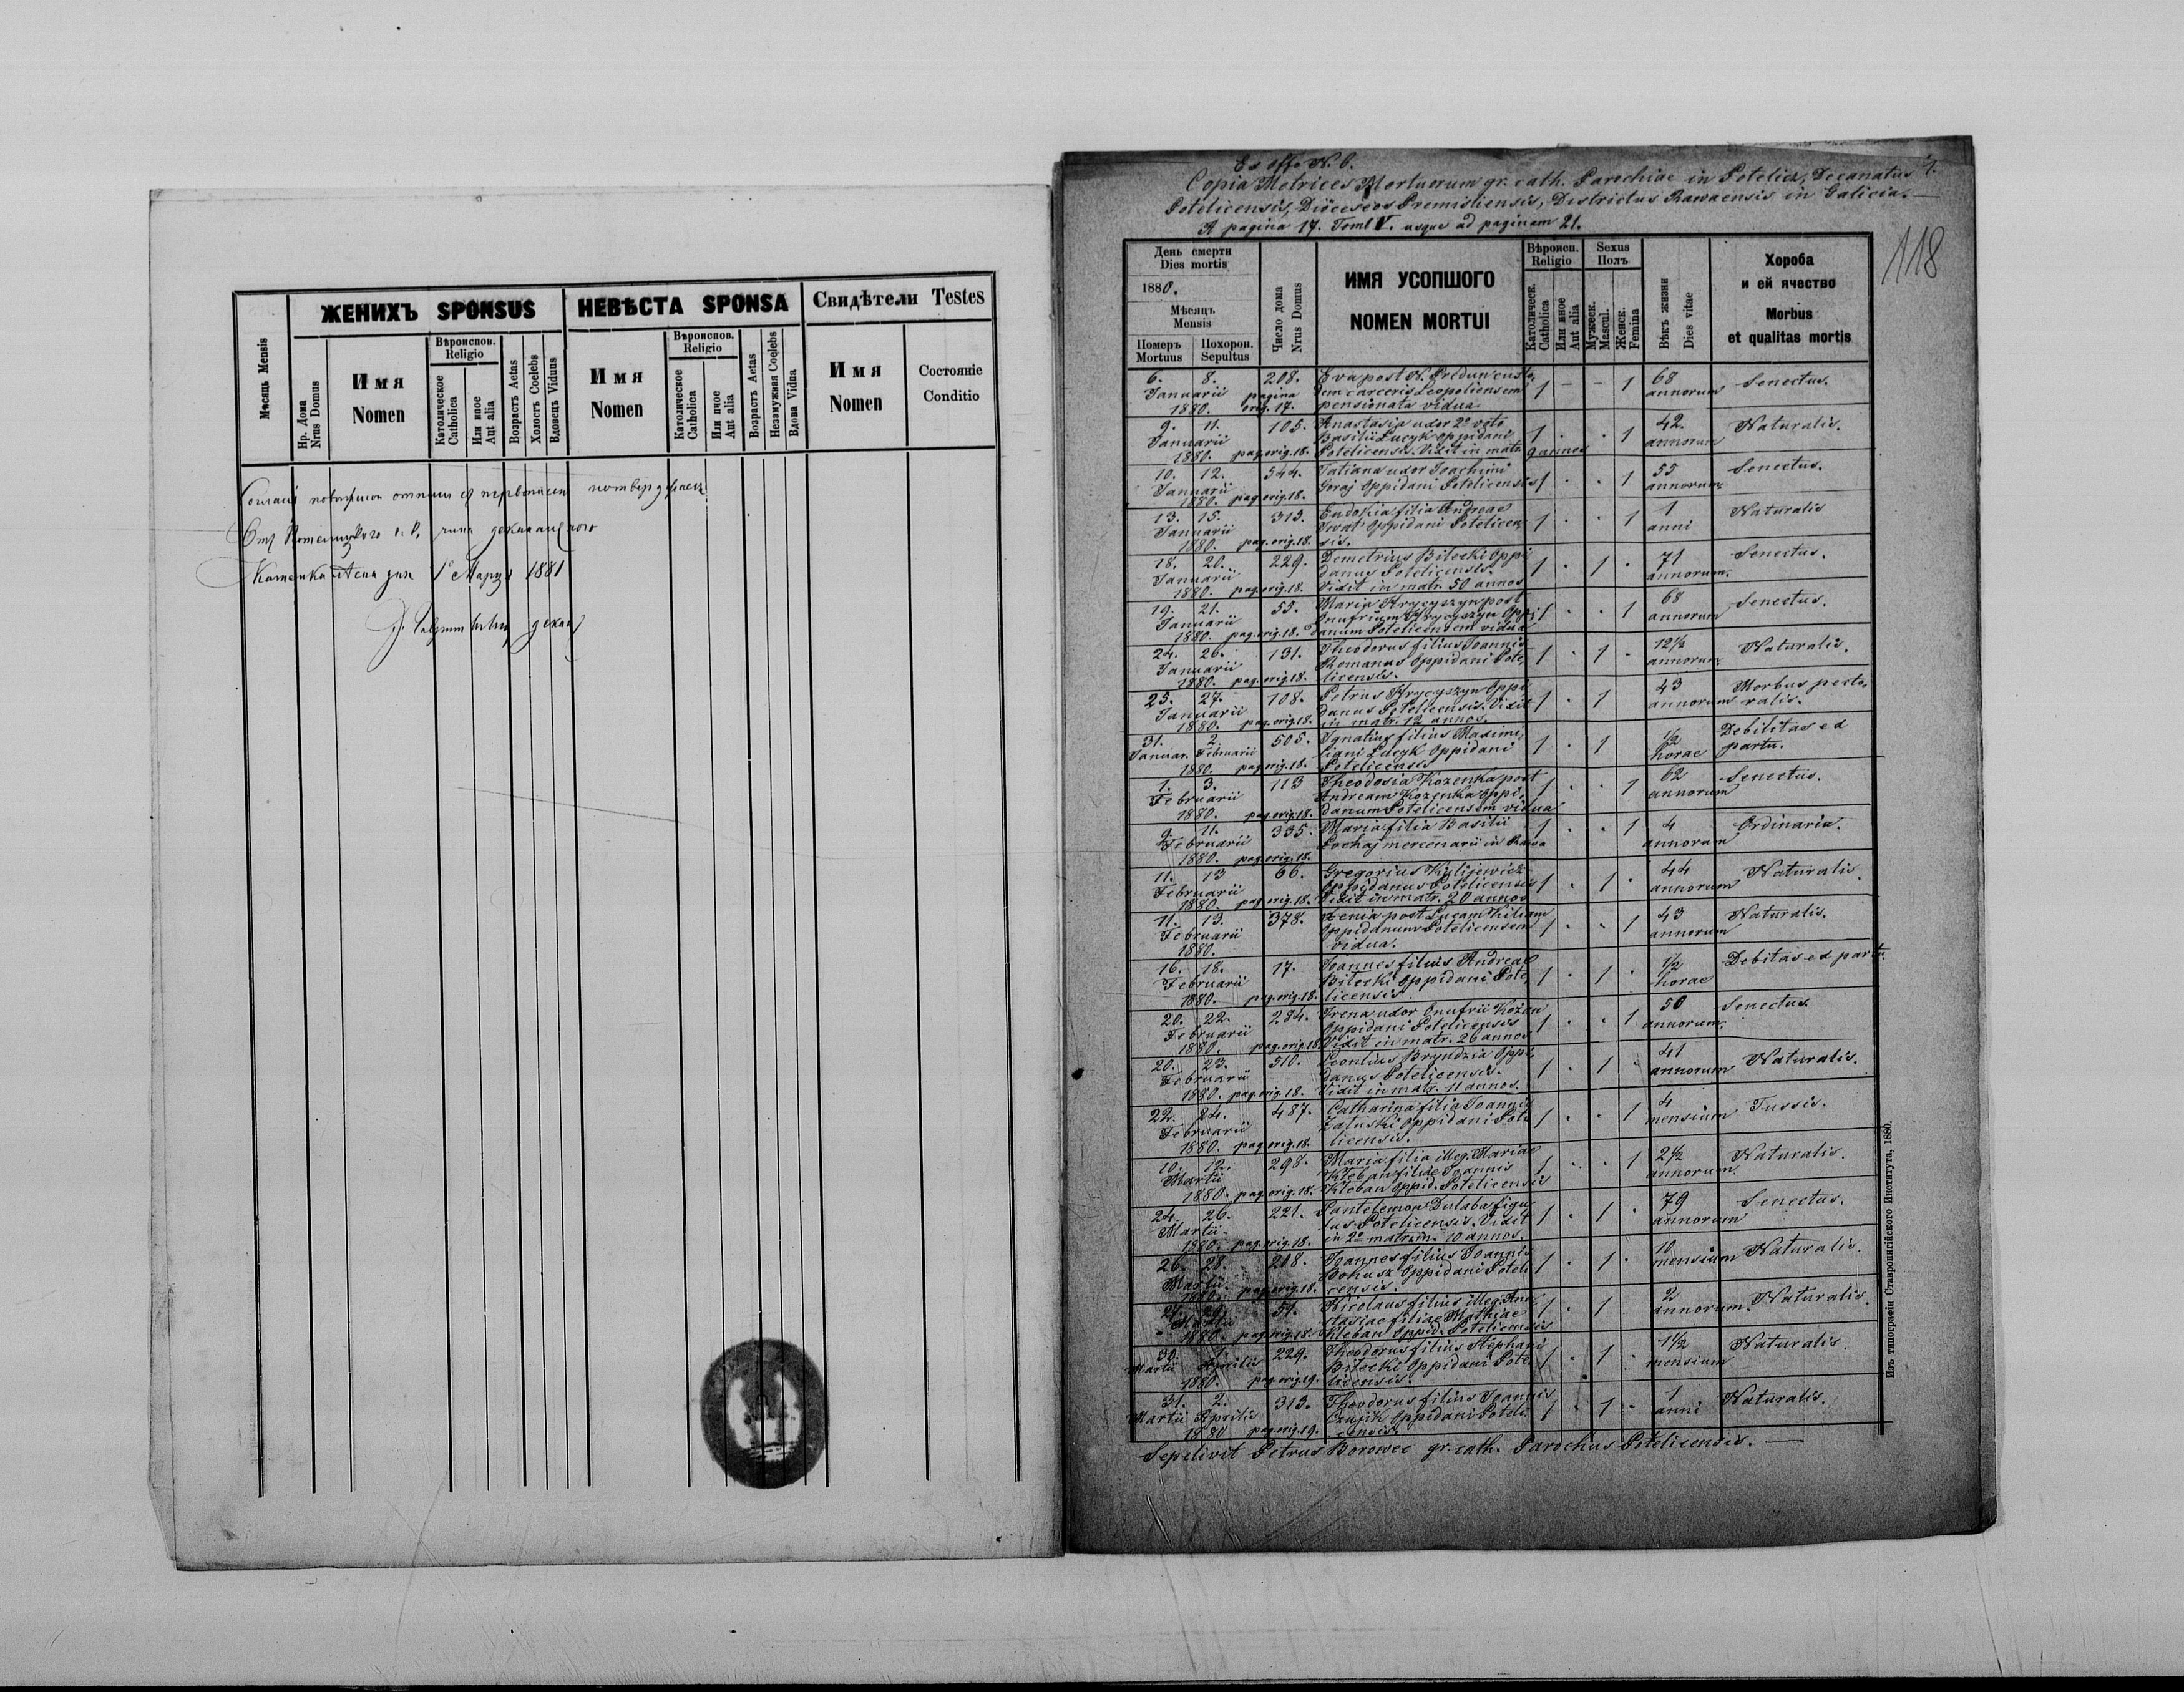 ЖЕНИХЪ SPONSUS
НЕВѢСТА SPONSA
Свидѣтели Testes
Мѣсяць Mensis
Нр. Дома
Nrus Domus
Имя
Nomen
Вѣроиспов.
Religio
Католическое
Catholica
Или иное
Aut alia
Возрастъ Aetas
Холостъ Coelebs
Вдовець Viduus
Имя
Nomen
Вѣроиспов.
Religio
Католическое
Catholica
Или иное
Aut alia
Возрастъ Aetas
Незамужная Coelebs
Вдова Vidua
Имя
Nomen
Состояніе
Conditio
1881
Ex offo N. 6.
Copia Metrices Mortuorum gr. cath. Parochiae in Potelicz, Decanatus
Potelicensis, Dioceseos Premisliensis, Districtus Rawaensis in Galicia.
A pagina 17. Tomi V. usque ad paginam 21.
118
День смерти
Dies mortis
1880.
Мѣсяцъ
Mensis
Померъ
Mortuus
Похорон.
Sepultus
Число дома
Nrus Domus
ИМЯ УСОПШОГО
NOMEN MORTUI
Вѣроисп.
Religio
Католическ.
Catholica
Или иное
Aut alia
Sexus
Полъ
Мужеск.
Mascul.
Женск.
Femina
Вѣкъ жизни
Dies vitae
Хороба
и ей ячество
Morbus
et qualitas mortis
6. 8. 208. Eva post N. Predun custo 1 - - 1 68 Senectus.
Januarii pagina dem carceris Leopoliensem annorum
1880. orig. 17. pensionata vidua.
9. 11. 105. Anastasia uxor 2º voto 1 . . 1 42 Naturalis.
Januarii Basilii Lucyk oppidani annorum
1880. pag. orig. 18. Potelicensis. Vixit in matr. 9 annos
10. 12. 344. Tatiana uxor Joachimi 1 . . 1 55 Senectus.
Januarii Goraj Oppidani Potelicensis annorum
1880. pag. orig. 18.
13. 15. 313. Eudokia filia Andreae 1 . . 1 1 Naturalis
Januarii Oppidani Potelicen anni
1880. pag. orig. 18. sis.
18. 20. 229. Demetrius Bilecki Oppi 1 . 1 . 71 Senectus.
Januarii danus Potelicensis. annorum.
1880. pag. orig. 18. Vixit in matr. 50 annos
19. 21. 53. Maria Hrycyszyn post 1 . . 1 68 Senectus.
Januarii Onufrium Hrycyszyn Oppi annorum
1880. pag. orig. 18. danum Potelicensem vidua
24. 26. 131. Theodorus filius Joannis 1 . 1 . 12½ Naturalis.
Januarii Romanus Oppidani Pote annorum
1880. pag. orig. 18. licensis.
25. 27. 108. Petrus Hrycyszyn Oppi 1 . 1 43 Morbus pecto
Januarii danus Potelicensis. Vixit annorum ralis.
1880. pag. orig. 18. in matr. 12 annos.
31. 2. 505. Ignatius filius Maximi 1 . 1 ½ Debilitas ex
Januar. Februarii liani Lucyk Oppidani horae partu.
1880. pag. orig. 18. Potelicensis
1. 3. 113 Theodosia Kozenka post 1 . . 1 62 Senectus.
Februarii Andream Kozenka Oppi annorum
1880. pag. orig. 18. danum Potelicensem vidua
9. 11. 335. Maria filia Basilii 1 . . 1 4 Ordinaria.
Februarii Lochaj mercenarii in Rawa annorum
1880. pag. orig. 18.
11. 13 66. Gregorius Kylijewicz 1 . 1 . 44 Naturalis.
Februarii Oppidanus Potelicensis annorum
1880. pag. orig. 18. Vixit in matr. 20 annos
11. 13. 378. Xenia post Lucam Kiliam 1 . . 1 43 Naturalis.
Februarii Oppidanum Potelicensem annorum
1880. vidua.
16. 18. 17. Joannes filius Andreae 1 . 1 . ½ Debitas ex partu.
Februarii Bilecki Oppidani Pote horae
1880. pag. orig. 18. licensis
20. 22. 284. Irena uxor Onufrii 1 . . 1 50 Senectus
Februarii Oppidani Potelicensis annorum.
1880. pag. orig. 18. Vixit in matr. 26 annos
20. 23. 510. Leontius Bryndzia Oppi 1 . 1 . 41 Naturalis.
Februarii danus Potelicensis. annorum
1880. pag. orig. 18. Vixit in matr. 11 annos.
22. 24. 487. Catharina filia Joannis 1 . . 1 4 Tussis.
Februarii Załuski Oppidani Pote mensium
1880. pag. orig. 18. licensis.
10. 12. 298. Maria filia illeg. Mariae 1 . . 1 2½ Naturalis.
Martii Kleban filiae Joannis annorum
1880. pag. orig. 18. Kleban Oppid. Potelicensis
24. 26. 221. Pantelemon Dulaba figu 1 . 1 . 79 Senectus.
Martii lus Potelicensis. Vixit annorum
1880. pag. orig. 18. in 2º matrim. 10 annos.
26. 28. 208. Joannes filius Joannis 1 . 1 . 10 Naturalis.
Martii Bohusz Oppidani Poteli mensium
1880. pag. orig. 18. censis.
27. 29. 51. Nicolaus filius illeg. Ana 1 . 1 2 Naturalis
Martii stasiae filiae Mathiae annorum.
1880. pag. orig. 18. Kleban Oppid. Potelicensis
30. 1. 229. Theodorus filius Stephani 1 . 1 . 1½ Naturalis.
Martii Aprilis Bilecki Oppidani Pote mensium
1880. pag. orig. 19. licensis.
31. 2. 313. Theodorus filius Joannis 1 . 1 . 1 Naturalis.
Martii Aprilis Oppidani Poteli anni
1880 pag. orig. 19. censis.
Sepelivit Petrus Borowec gr. cath. Parochus Potelicensis.
Изъ типографіи Ставропигійского Института, 1880.